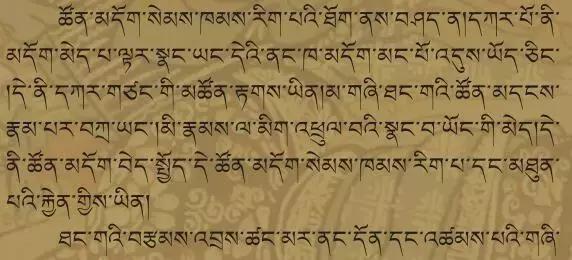 ཚོན་མདོག་སེམས་ཁམས་རིག་པའི་ཐོག་ནས་བཤད་ན།དཀར་པོ་ནི་
མདོག་མེད་པ་ལྟར་སྣང་ཡང་དེའི་ནང་ཁ་མདོག་མང་པོ་འདུས་ཡོད་ཅིང་
།དེ་ནི་དཀར་གཙང་གི་མཚོན་རྟགས་ཡིན།མ་གཞི་ཐང་གའི་ཚོན་མདངས་
རྣམ་པར་བཀྲ་ཡང་།མི་རྣམས་ལ་མིག་འཕྲུལ་བའི་སྣང་བ་ཡོང་གི་མེད།དེ་
ནི་ཚོན་མདོག་བེད་སྤྱོད་དེ་ཚོན་མདོག་སེམས་ཁམས་རིག་པ་དང་མཐུན་
པའི་རྐྱེན་གྱིས་ཡིན།
ཐང་གའི་བརྩམས་འབྲས་ཚང་མར་ནང་དོན་དང་འཚམས་པའི་གཞི་